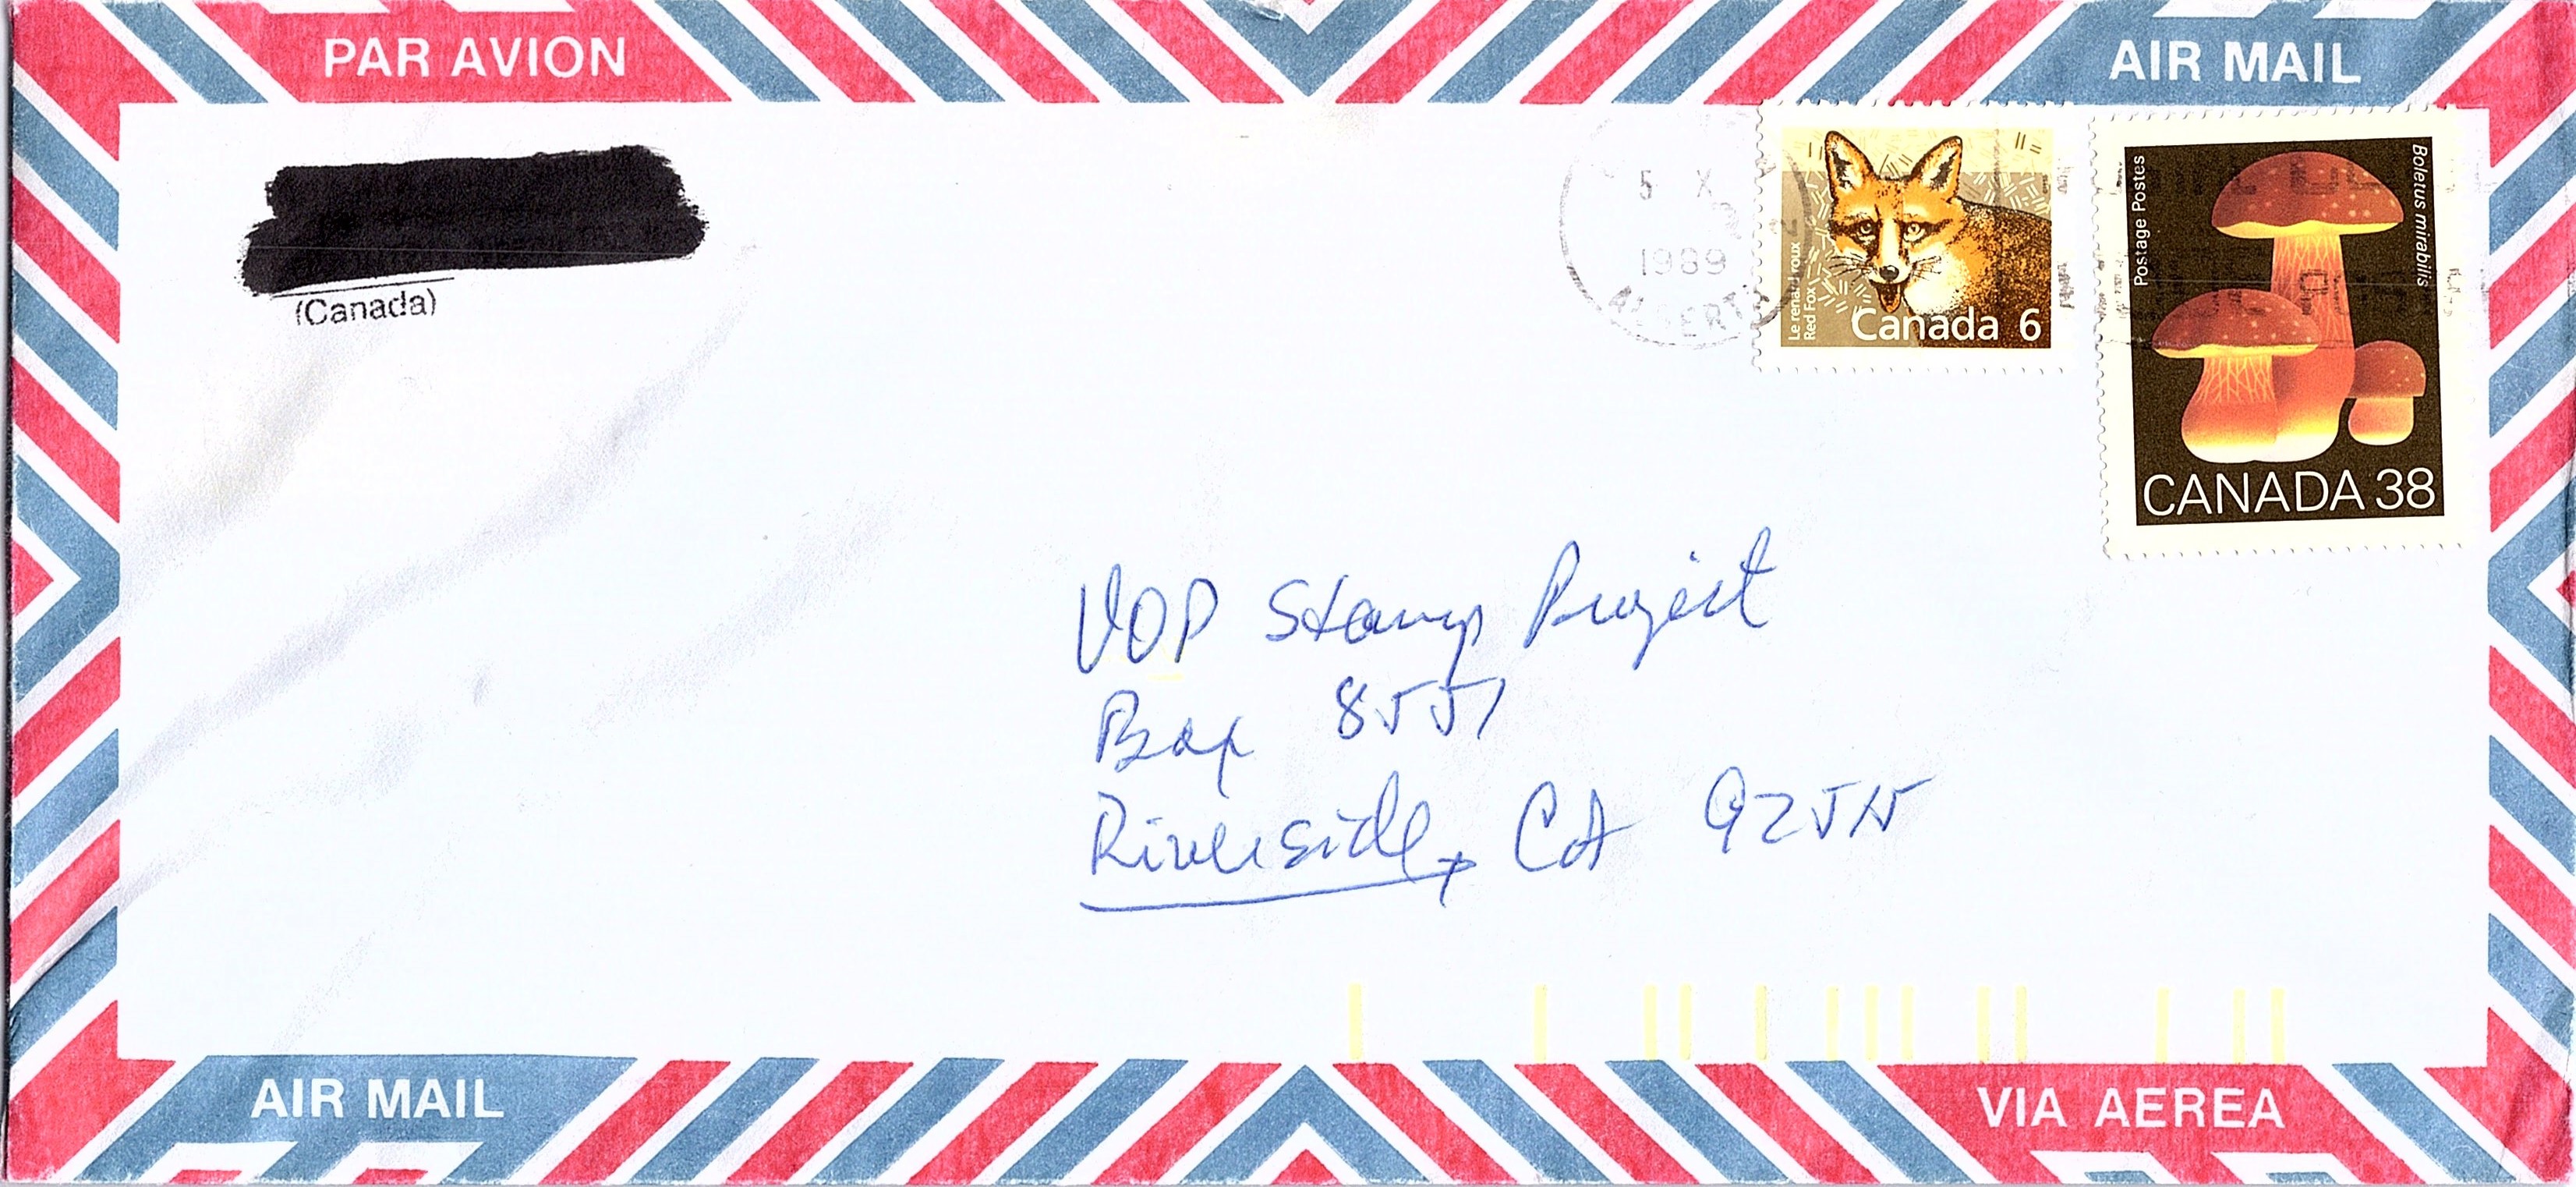 PAR AVION
AIR MAIL
(Canada)
5 X
1989
ALBERTA
Le renard roux
Red Fox
Canada 6
Postage Postes
Boletus mirabilis
CANADA 38
VOP Stamp Project
Box 8551
Riverside, CA 92515
AIR MAIL
VIA AEREA